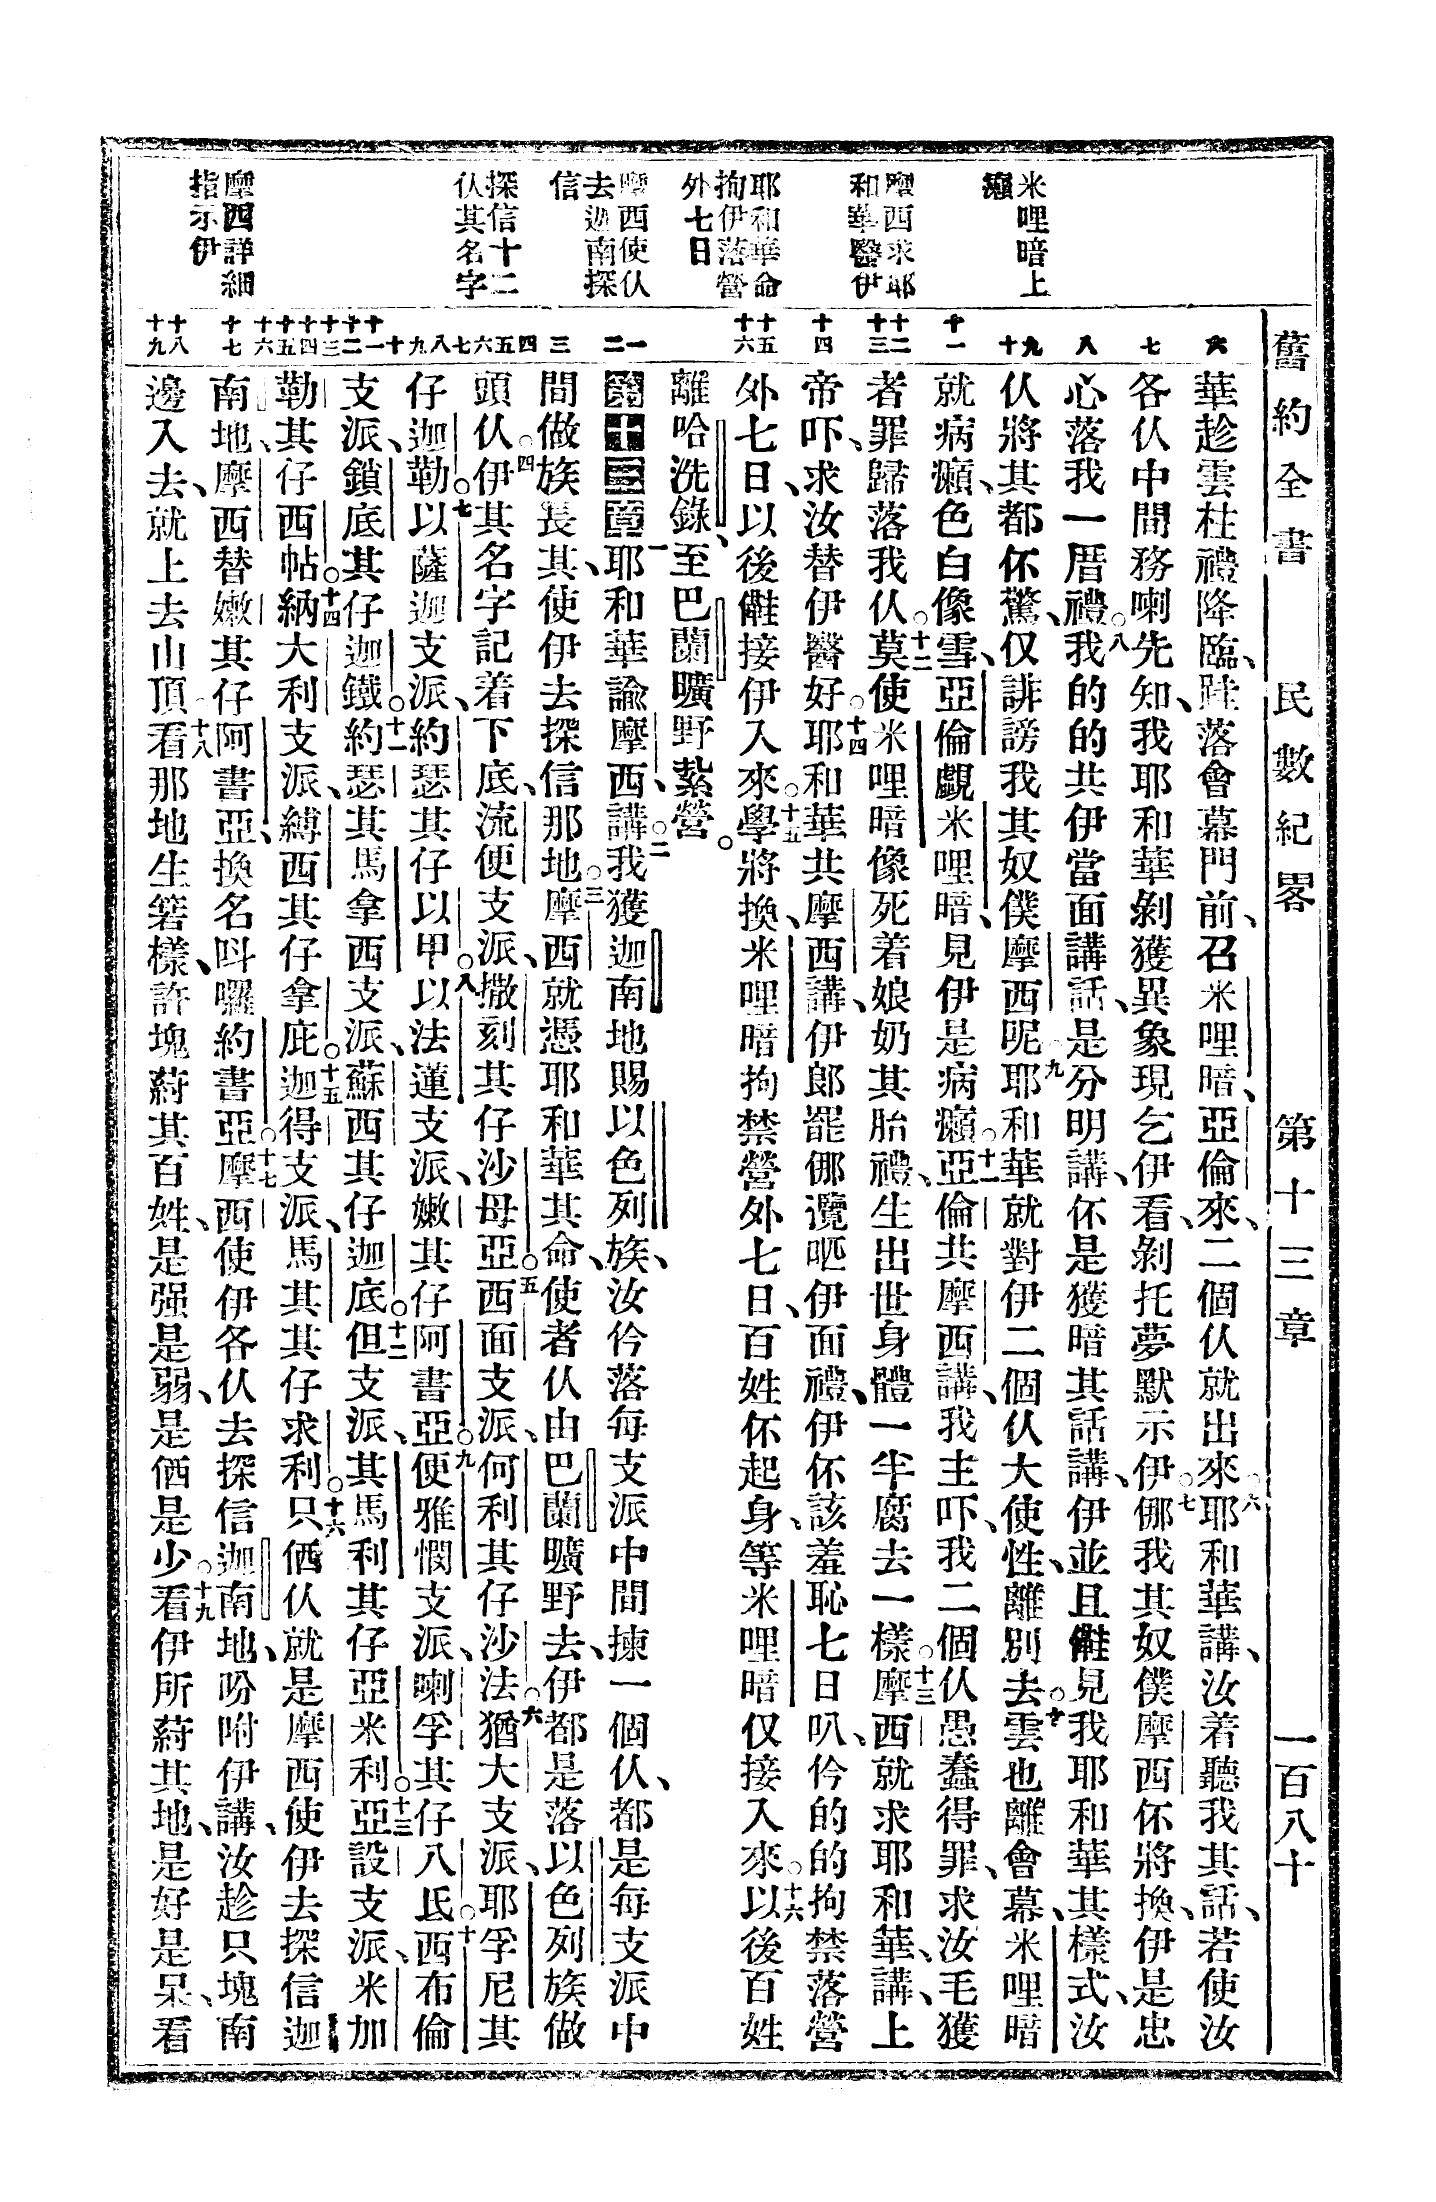 舊約全書 民數紀畧 第十三章 一百八十
米哩暗上
癩
摩西求耶
和華醫伊
耶和華命
拘伊落營
外七日
摩西使仈
去迦南探
信
探信十二
仈其名字
摩西詳細
指示伊
六
七
八
九十
十一
十二十三
十四
十五十六
一二
三
四五六
七八九十
十一十二十三
十四十五十六
十七
十八十九
華趁雲柱禮降臨、跍落會幕門前、召米哩暗、亞倫來、二個仈就出來○六耶和華講、汝着聽我其話、若使汝
各仈中間務喇先知、我耶和華剝獲異象現乞伊看、剝托夢默示伊○七㑚我其奴僕摩西伓將換、伊是忠
心落我一厝禮○八我的的共伊當面講話、是分明講、伓是獲暗其話講、伊並且㒸見我耶和華其樣式、汝
仈將其都伓驚、仅誹謗我其奴僕摩西呢○九耶和華就對伊二個仈大使性、離別去○十雲也離會幕、米哩暗
就病癩、色白像雪、亞倫覷米哩暗、見伊是病癩○十一亞倫共摩西講、我主吓、我二個仈愚蠢得罪、求汝毛獲
者罪歸落我仈○十二莫使米哩暗像死着娘奶其胎禮、生出世身體一半腐去一樣○十三摩西就求耶和華講、上
帝吓、求汝替伊醫好○十四耶和華共摩西講、伊郎罷㑚灠㕷伊面禮、伊伓該羞恥七日叭、仱的的拘禁落營
外七日、以後㒸接伊入來○十五學將換、米哩暗拘禁營外七日、百姓伓起身、等米哩暗仅接入來○十六以後百姓
離哈洗錄、至巴蘭曠野紮營○
第十三章一耶和華諭摩西講○二我獲迦南地賜以色列族、汝仱落每支派中間揀一個仈、都是每支派中
間做族長其、使伊去探信那地○三摩西就憑耶和華其命、使者仈由巴蘭曠野去、伊都是落以色列族做
頭仈○四伊其名字記着下底、流便支派、撒刻其仔沙母亞○五西面支派、何利其仔沙法○六猶大支派、耶孚尼其
仔迦勒○七以薩迦支派、約瑟其仔以甲○八以法蓮支派、嫩其仔阿書亞○九便雅憫支派、喇孚其仔八氐○十西布倫
支派、鎖底其仔迦鐵○十一約瑟其馬拿西支派、蘇西其仔迦底○十二但支派、其馬利其仔亞米利○十三亞設支派、米加
勒其仔西帖○十四納大利支派、縛西其仔拿庇○十五迦得支派、馬其其仔求利○十六只價仈就是摩西使伊去探信迦
南地、摩西替嫩其仔阿書亞、換名呌囉約書亞○十七摩西使伊各仈去探信迦南地、吩咐伊講、汝趁只塊南
邊入去、就上去山頂○十八看那地生箬樣、許塊蒔其百姓、是强是弱、是価是少○十九看伊所蒔其地、是好是呆、看